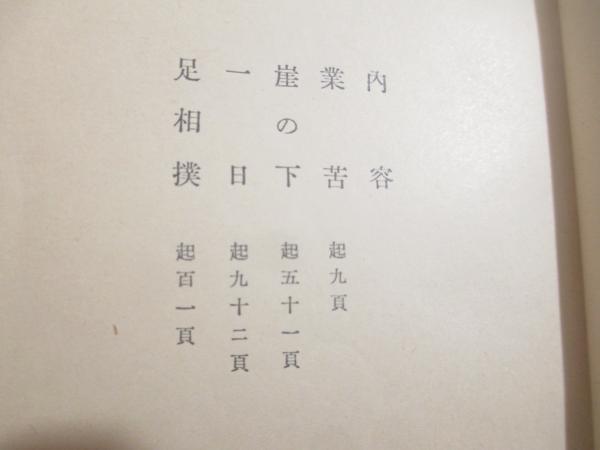 內容
業苦 起九頁
崖の下 起五十一頁
一日 起九十二頁
足相撲 起百一頁